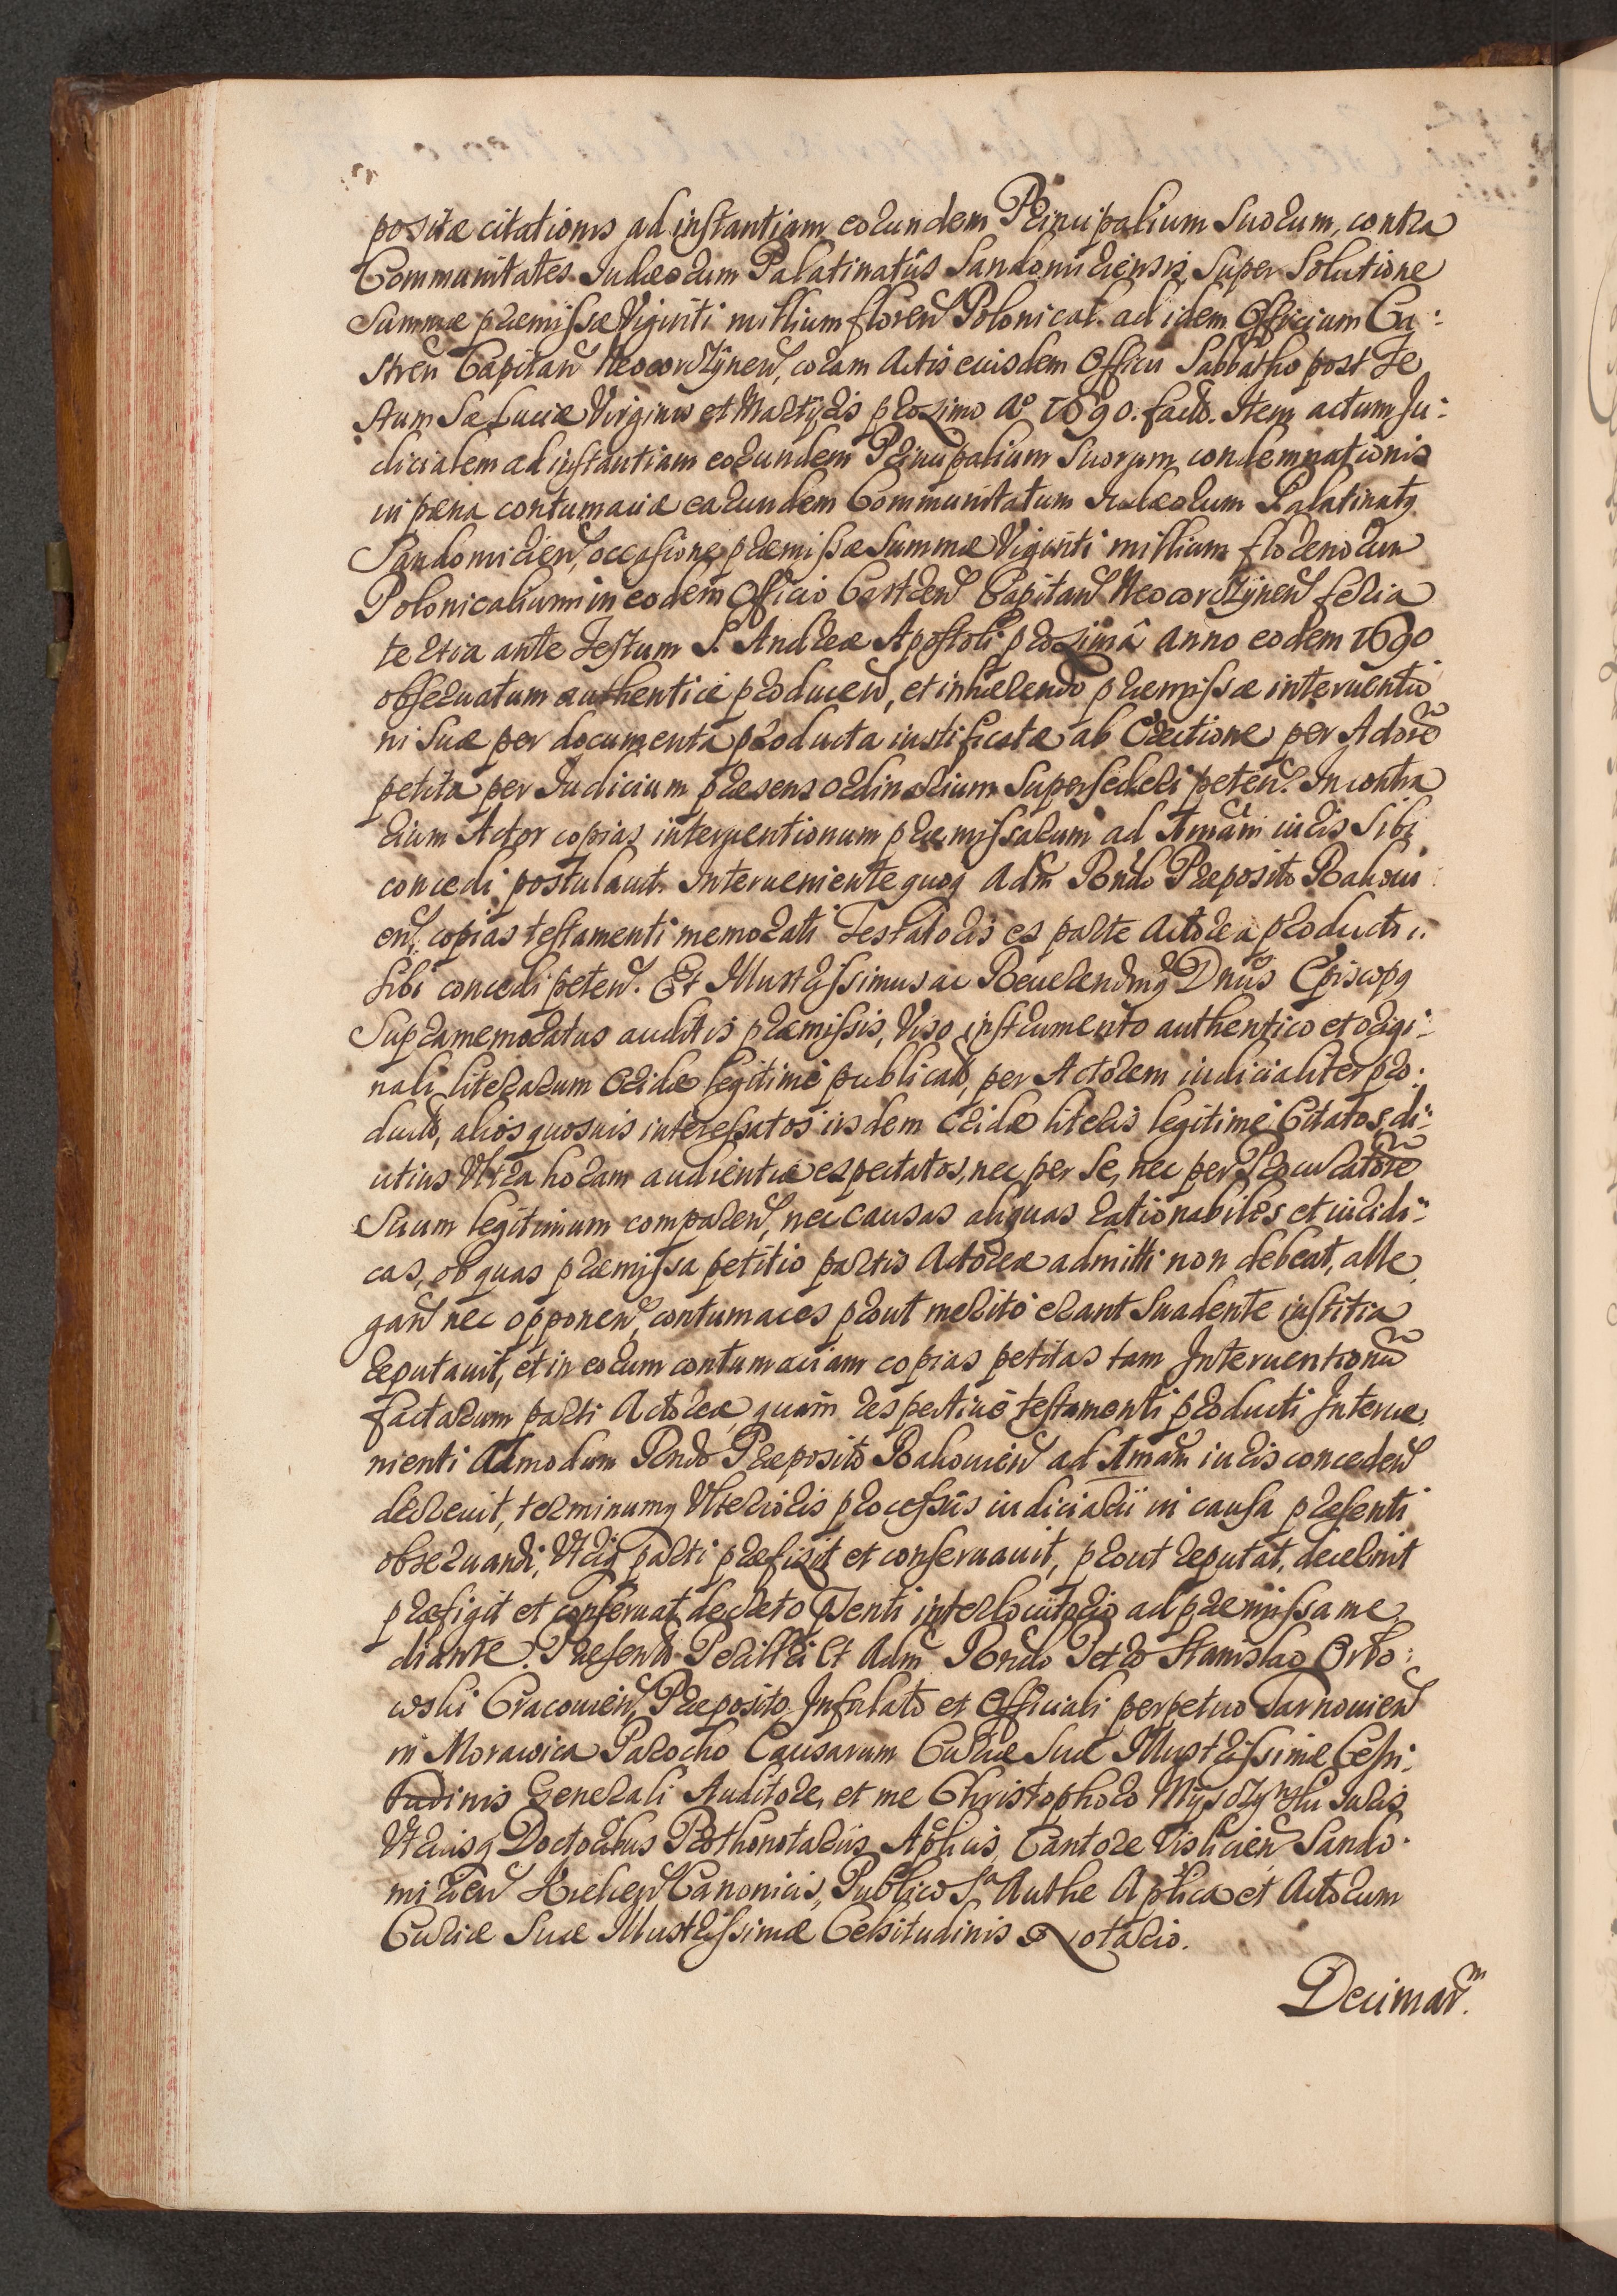 positæ citationis ad instantiam eorundem Principalium Suorum, contra
Communitates Iudæorum Palatinatûs Sandomiriensis, Super Solutione
Summæ præmissæ Viginti millium floren Polonical. ad idem Officium Ca:
stren Capitan Neocorczynen, coram Actis eiusdem Officii Sabbatho post Fe
stum Sæ Luciæ Virginis et Martyris proximo Aº 1690. facto. Item actum Ju:
dicialem ad instantiam eorundem Principalium Suorum condemnationis
in pæna contumaciæ earundem Communitatum Iudæorum Palatinatq
Sandomirien, occasione præmissæ Summæ Viginti millium florenorum
Polonicalium in eodem Officio Castren Capitan Neocorczynen feria
tertia ante Festum S. Andreæ Apostoli proximâ Anno eodem 1690
obseruatum authenticè producen, et inhærendo præmissæ interuentio
ni Suæ per documenta producta iustificatæ ab Erectione per Actorē
petita per Iudicium præsens ordinarium Supersederi peten. In contra
rium Actor copias interuentionum præmissarum ad Amām iuris Sibi
concedi postulauit. Interueniente quoq Adm Rndo Præposito Rakoui
en, copias testamenti memorati Testatoris ex parte Actorea producti
sibi concedi peten. Et Illustrissimus ac Reuerendmq Dnus Episcopq
Supramemoratus auditis præmissis, Viso instrumento authentico et origi:
nali literarum Cridæ legitimè publicato, per Actorem iudicialiter pro:
ducto, aliòs quosuis interessatos iisdem Cridæ literis legitimè Citatos, di:
utius Vltra horam audientiæ expectatos, nec per Se, nec per Procuratorē
Suum legitimum comparen, nec causas aliquas rationabiles et iuridi:
cas, ob quas præmissa petitio partis Actoreæ admitti non debeat, alle
gan nec opponen, contumaces prout meritò erant Suadente iustitia
reputauit, et in eorum contumaciam copias petitas tam Interuentionū
factarum parti Actoreæ, quàm respectiuè testamenti producti Interue
nienti Admodum Rndo Præposito Rakouien ad Amām iuris conceden
decreuit, terminumq Vlterioris processûs iudiciarii in causa præsenti
obseruandi, Vtriq parti præfixit et conseruauit, prout reputat, decernit
præfigit et conseruat decreto præsenti interlocutorio ad præmissa me
diante. Præsente Perillri et Adm Rndo Petro Stanislao Orło:
wski Cracouien, Præposito Infulato et Officiali perpetuo Tarnouien
in Morawica Parocho Causarum Curiæ Suæ Illustrissimæ Celsi:
tudinis Generali Auditore, et me Christophoro Iuris
Vtriusq Doctoribus Prothonotariis Aplicis, Cantore Vislicien Sando:
mirien Kielcen Canonicis, Publico Sa Authe Aplica et Actorum
Curiæ Suæ Illustrissimæ Celsitudinis Notario.
Decimarm.